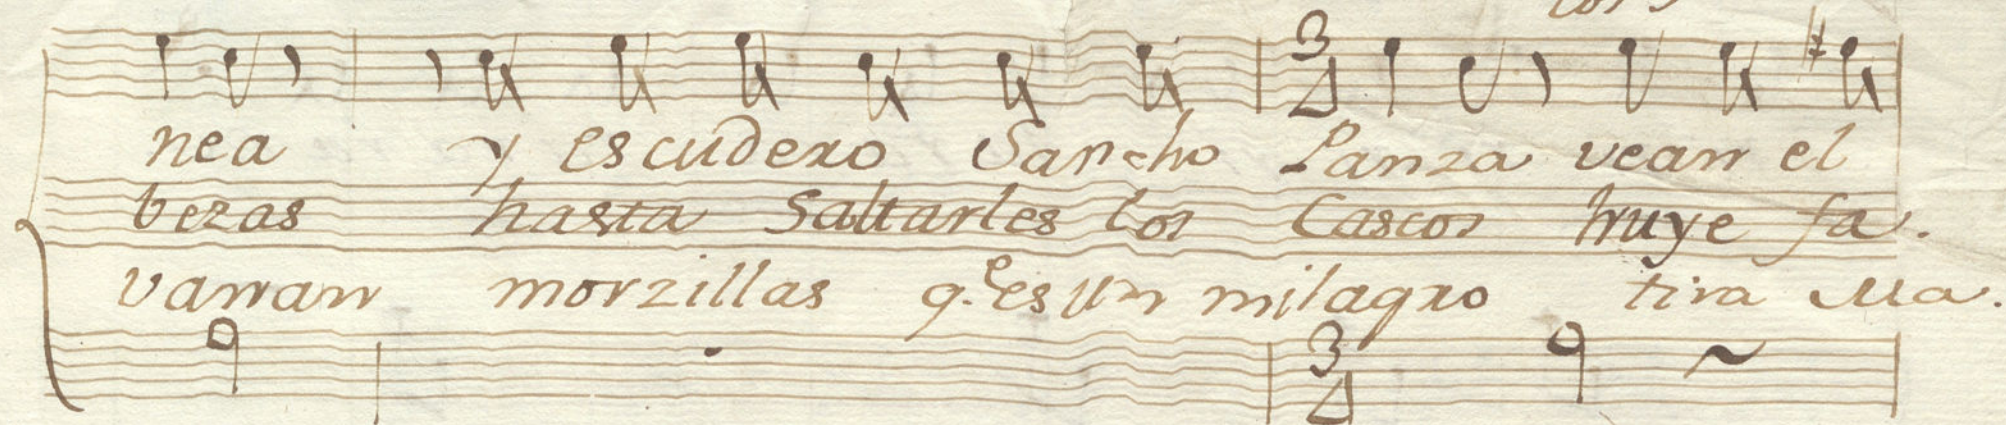 nea y escudero Sancho Panza vean el
bezas hasta Saltarles los Cascos huye fa.
vanan morzillas q.e es un milagro tira Ma.